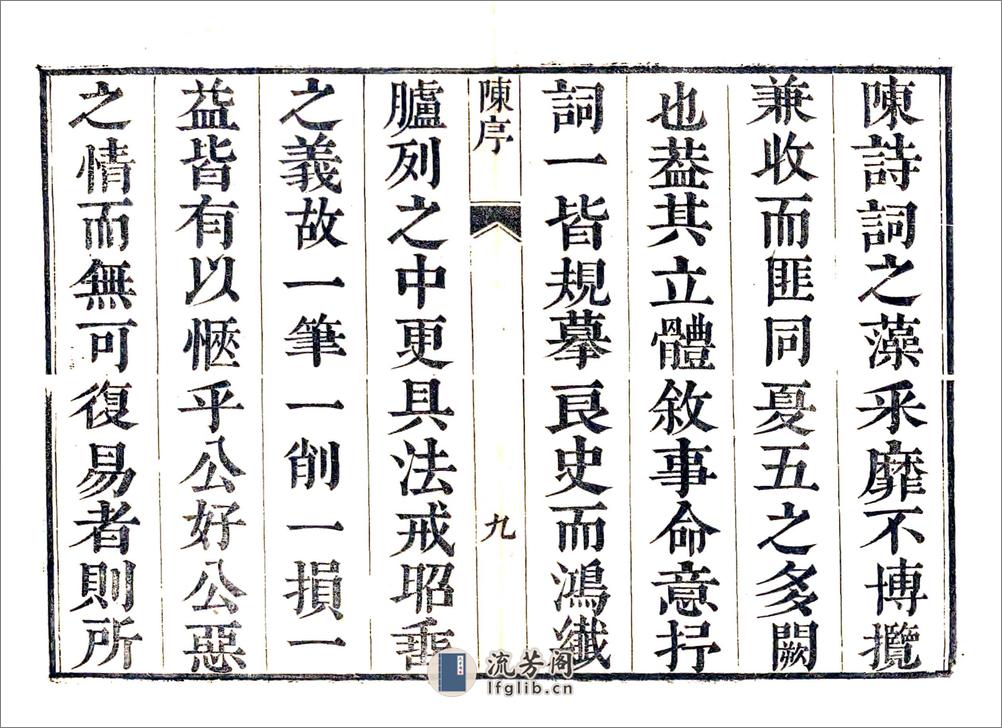 陳詩詞之藻采靡不博攬
兼收而匪同夏五之多闕
也葢其立體敘事命意抒
詞一皆規摹良史而鴻纖
陳序
九
臚列之中更具法戒昭垂
之義故一筆一削一損一
益皆有以愜乎公好公惡
之情而無可復易者則所
流芳阁
lfglib.cn